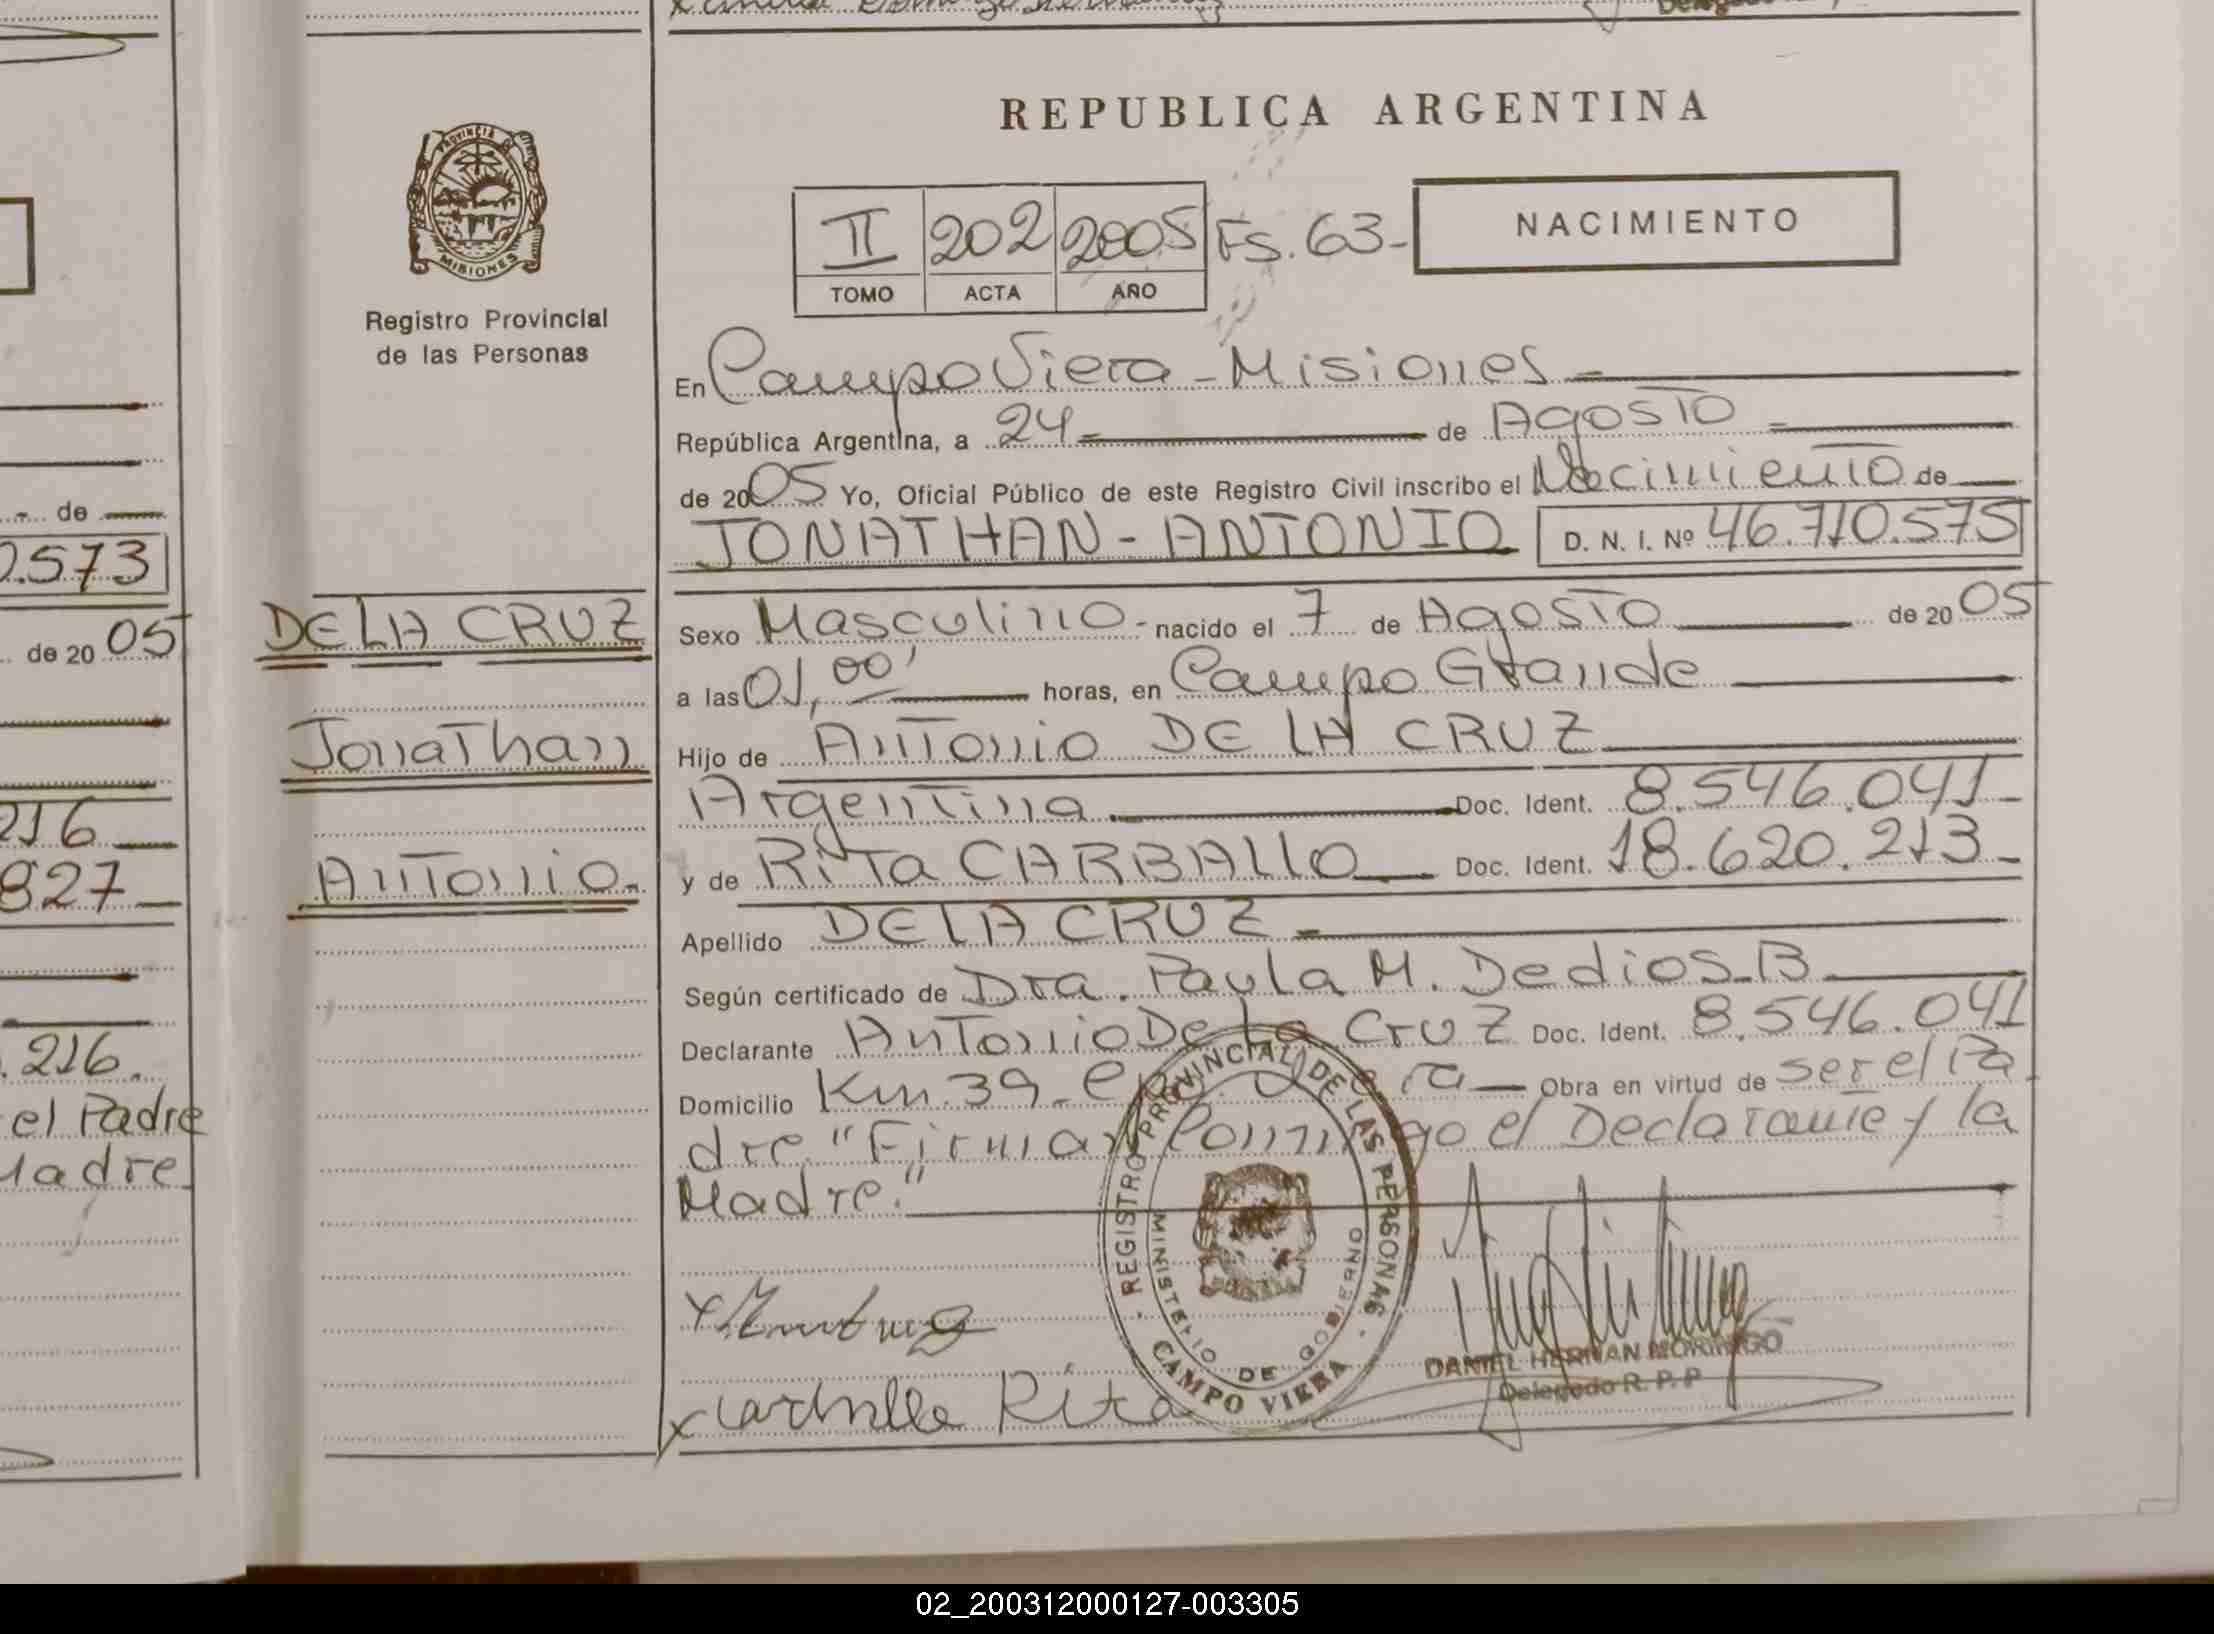 REPUBLICA ARGENTINA
PROVINCIA
MISIONES
Registro Provincial
de las Personas
II 202 2005 Fs. 63-
TOMO ACTA AÑO
NACIMIENTO
En Campo Viera - Misiones
República Argentina, a 24 de Agosto
de 2005 Yo, Oficial Público de este Registro Civil inscribo el Nacimiento de
JONATHAN - ANTONIO D. N. I. Nº 46.710.575
DE LA CRUZ
Jonathan
Antonio.
Sexo Masculino - nacido el 7 de Agosto de 2005
a las 01,00' horas, en Campo Grande
Hijo de Antonio DE LA CRUZ
Argentina Doc. Ident. 8.546.041-
y de Rita CARBALLO Doc. Ident. 18.620.213-
Apellido DE LA CRUZ
Según certificado de Dra. Paula M. Dedios.B
Declarante Antonio De La Cruz Doc. Ident. 8.546.041
Domicilio Km. 39- Obra en virtud de ser el Pa
dre. "Firman Conmigo el Declarante y la
Madre."
REGISTRO PROVINCIAL DE LAS PERSONAS
MINISTERIO DE GOBIERNO
CAMPO VIERA
x Carballo Rita
DANIEL HERNAN MORINIGO
Delegado R. P. P
0.573
de
de 20 05
216
827
.216.
el Padre
Madre
02_200312000127-003305